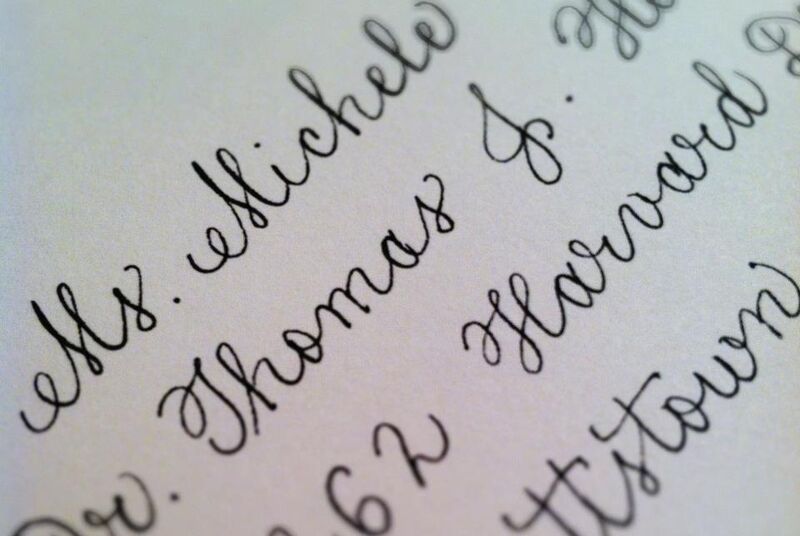 Ms. Michele
Dr. Thomas J. He
62 Harvard D
ttistown